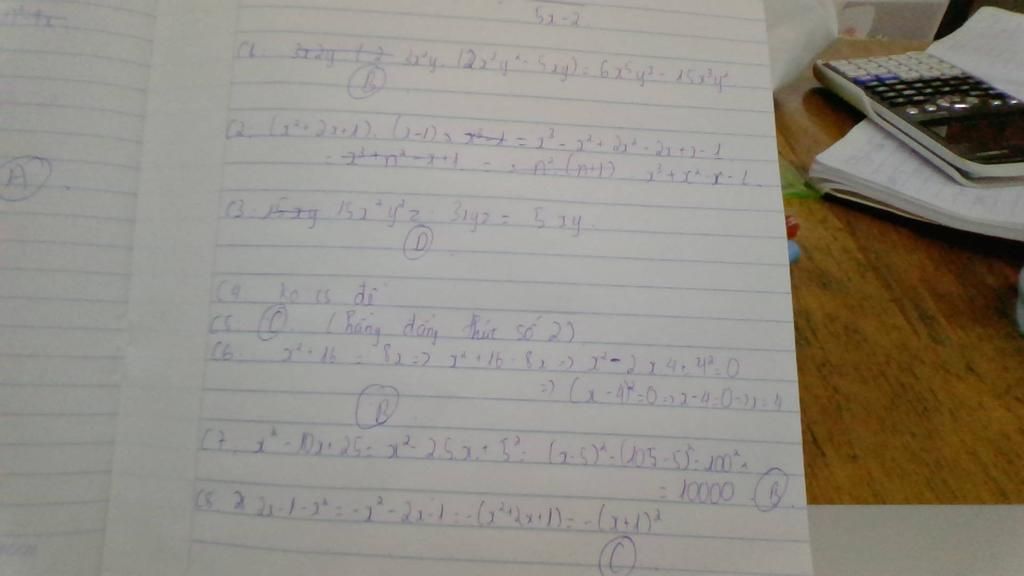 5x-2
C1. 3x2y (-2 3x²y. (2x³y² - 5xy) = 6x⁵y³ - 15x³y²
B
C2. (x² + 2x + 1). (x-1) = = x³ - x² + 2x² - 2x + x - 1
= x³ + n² - x + 1 = = n² (n+1) x³ + x² - x - 1
A
C3. 15xy 15x²y²z 3xyz = 5xy.
D
C4. ko có đề
C5. C. (hằng đẳng thức số 2)
C6. x² + 16 = 8x => x² + 16 - 8x => x² - 2x4 + 4² = 0
=> (x-4)² = 0 => x-4=0 => x=4
B
C7. x² - 10x + 25 = x² - 25x + 5² = (x-5)² = (105-5)² = 100² =
= 10000 B
C8. 2x-1-x² = -x² - 2x-1 = -(x²+2x+1) = -(x+1)²
C